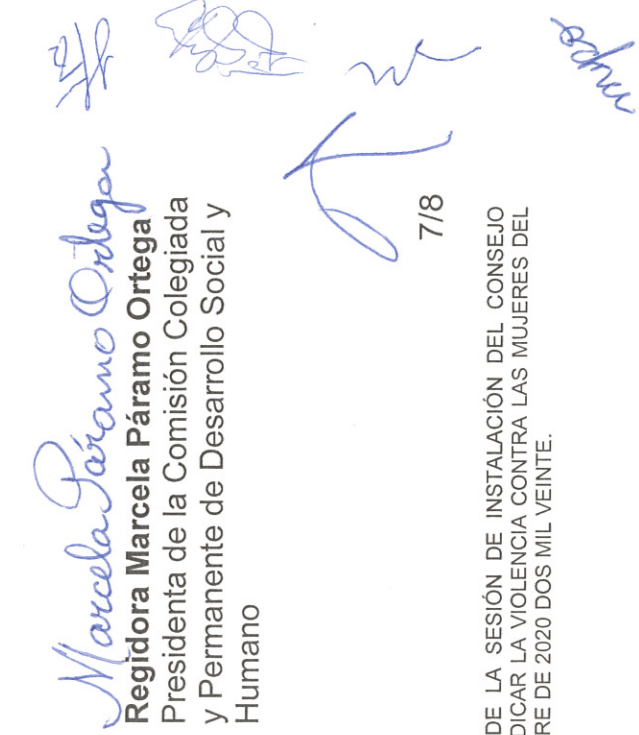 Marcela Páramo Ortega
Regidora Marcela Páramo Ortega
Presidenta de la Comisión Colegiada
y Permanente de Desarrollo Social y
Humano
7/8
DE LA SESIÓN DE INSTALACIÓN DEL CONSEJO
DICAR LA VIOLENCIA CONTRA LAS MUJERES DEL
RE DE 2020 DOS MIL VEINTE.